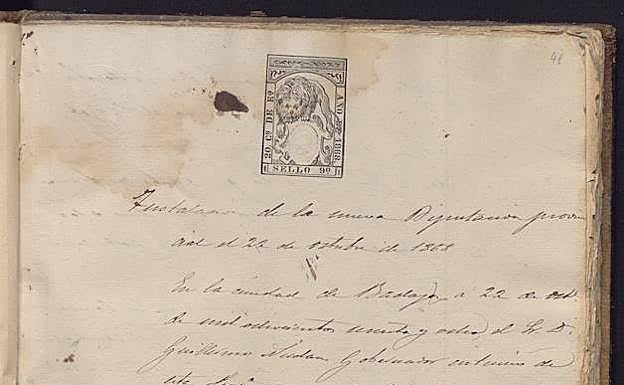 48
20 Cs DE Eo
AÑO DE 1868.
SELLO 9º
Instalacion de la nueva Diputacion provin
cial el 22 de octubre de 1868
En la ciudad de Badajoz a 22 de oct.
de mil ochocientos sesenta y ocho, el Sr. D.
Guillermo Nicolau, Gobernador interino de
esta